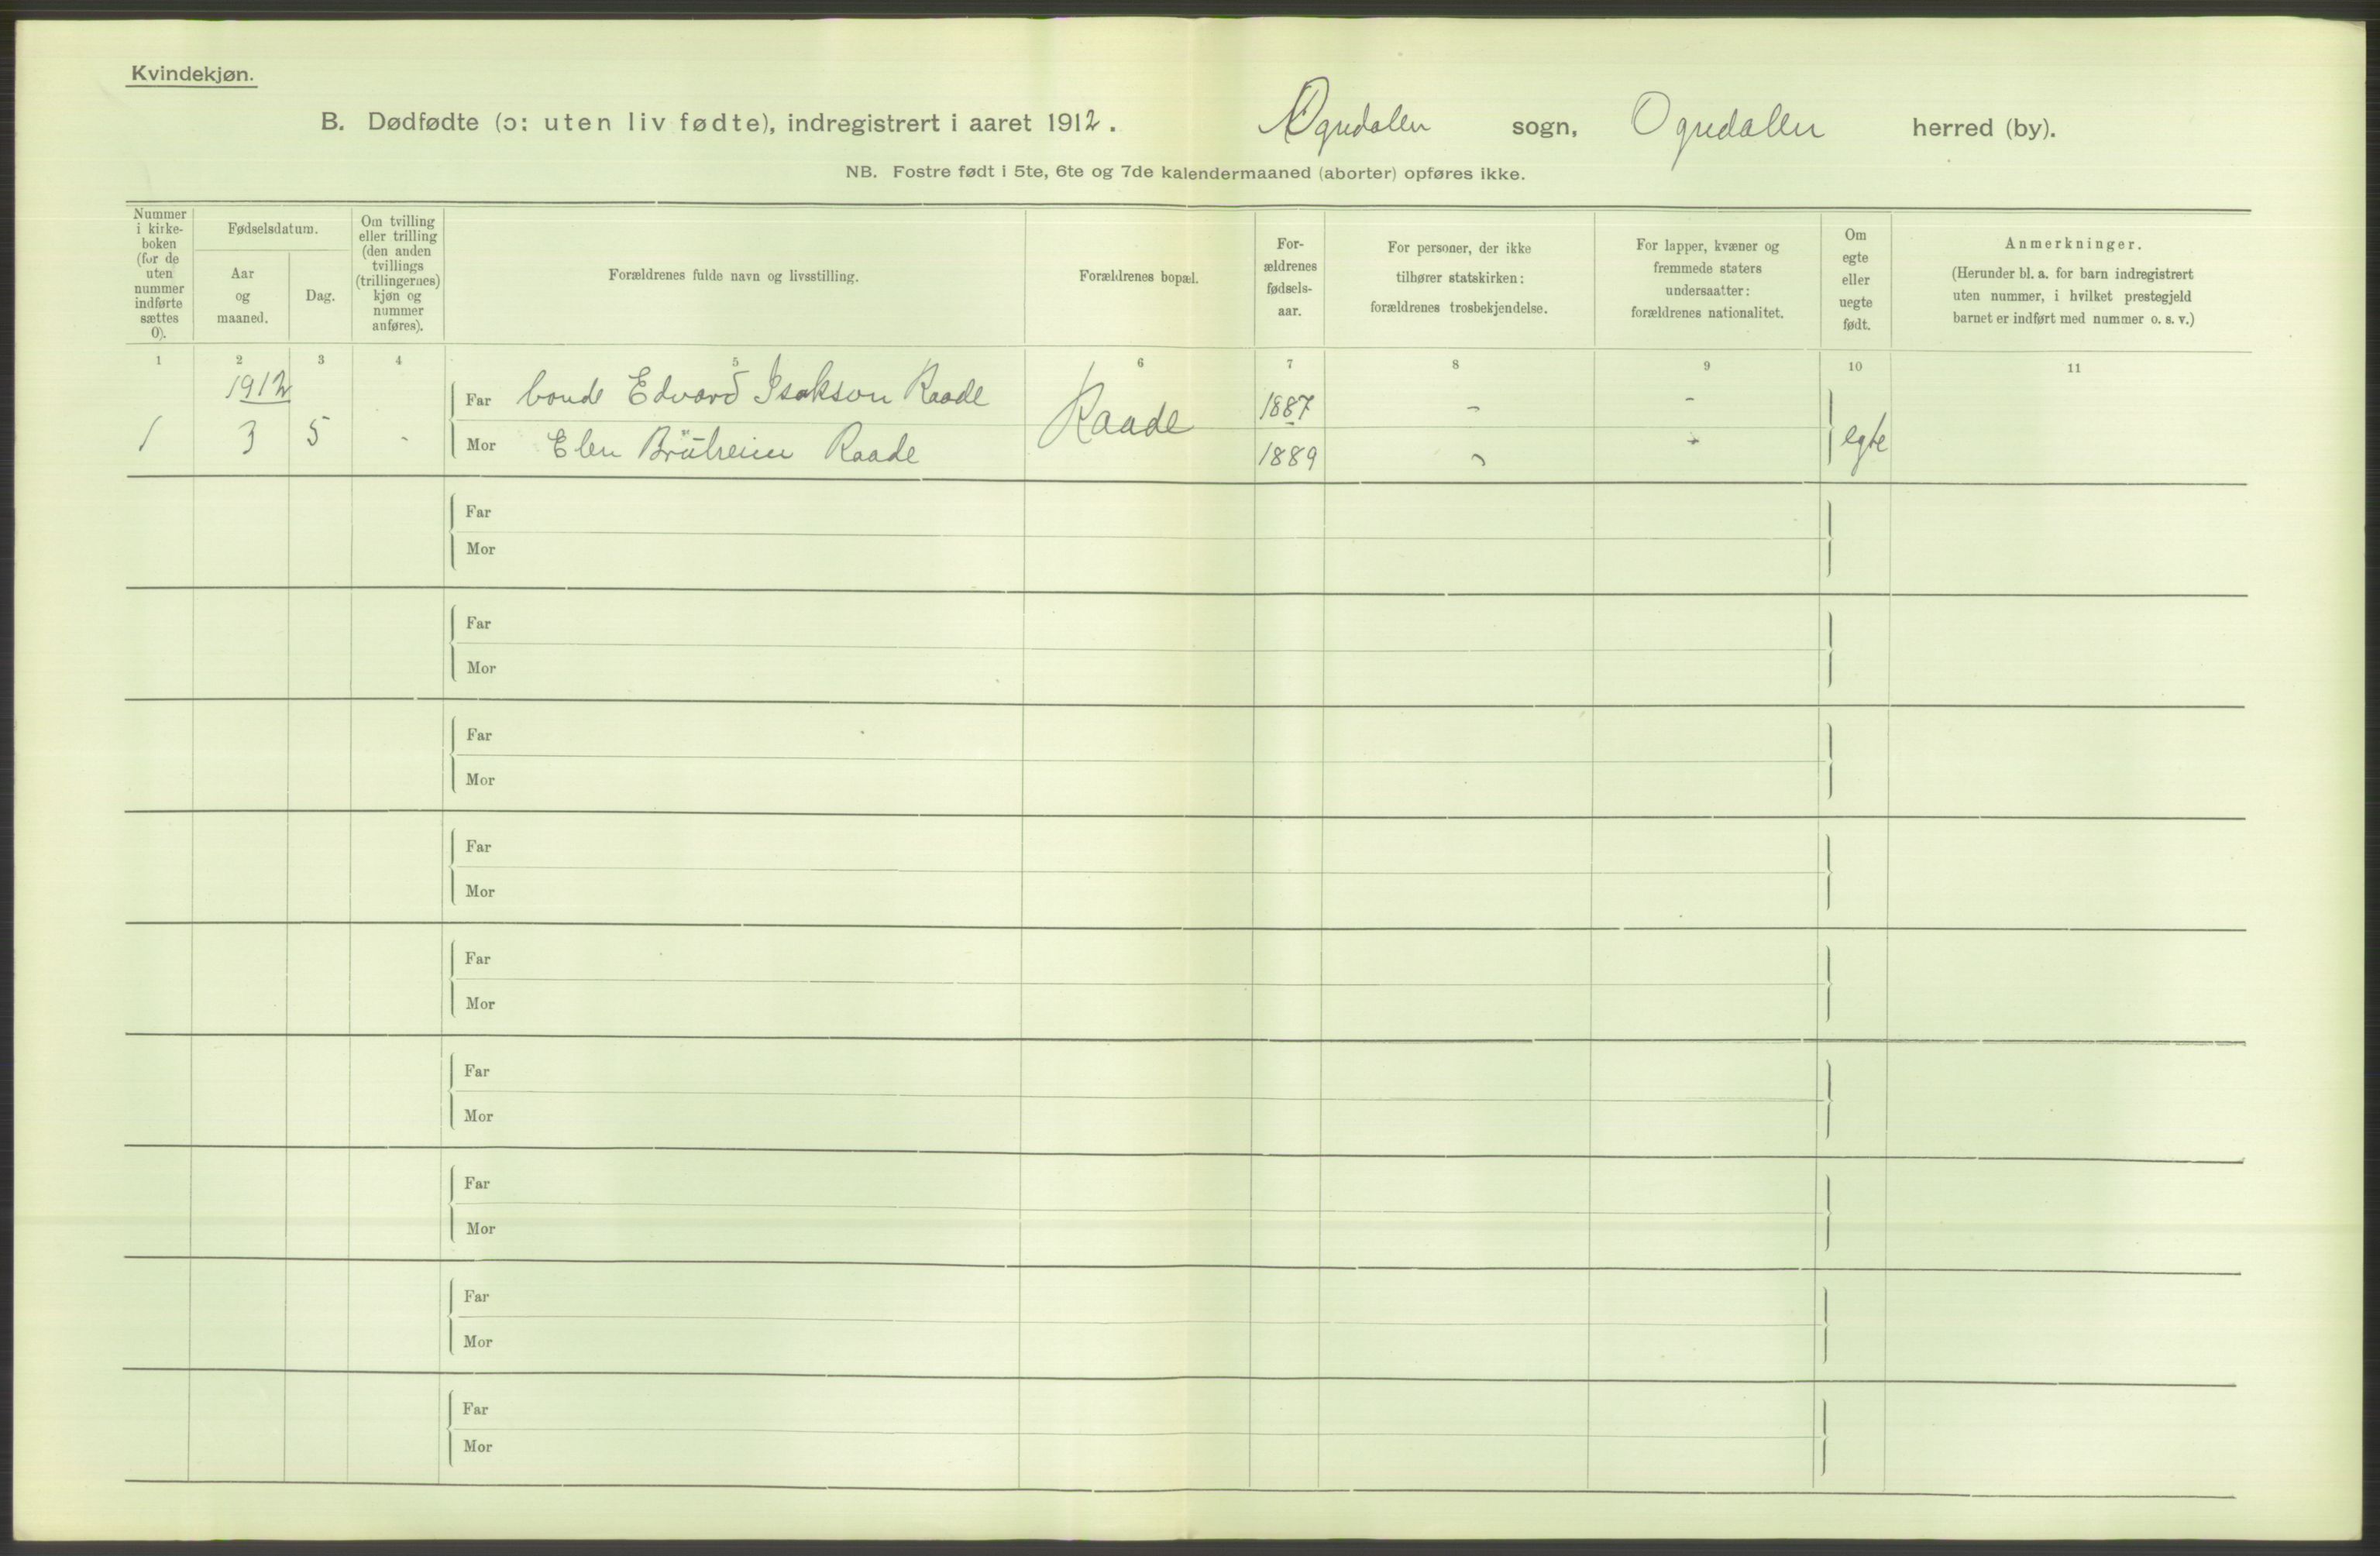 Kvindekjøn.
B. Dødfødte (ɔ: uten liv fødte), indregistrert i aaret 1912. Ogndalen sogn, Ogndalen herred (by).
NB. Fostre født i 5te, 6te og 7de kalendermaaned (aborter) opføres ikke.
Nummer i kirke-boken (for de uten nummer indførte sættes 0).
Fødselsdatum.
Aar og maaned.
Dag.
Om tvilling eller trilling (den anden tvillings (trillingernes) kjøn og nummer anføres).
Forældrenes fulde navn og livsstilling.
Forældrenes bopæl.
For-ældrenes fødsels-aar.
For personer, der ikke tilhører statskirken: forældrenes trosbekjendelse.
For lapper, kvæner og fremmede staters undersaatter: forældrenes nationalitet.
Om egte eller uegte født.
Anmerkninger.
(Herunder bl. a. for barn indregistrert uten nummer, i hvilket prestegjeld barnet er indført med nummer o. s. v.)
1 2 3 4 5 6 7 8 9 10 11
1912
Far bonde Edvard Isakson Raade Raade 1887 - -
1 3 5 - Mor Elen Raade 1889 - - egte
Far
Mor
Far
Mor
Far
Mor
Far
Mor
Far
Mor
Far
Mor
Far
Mor
Far
Mor
Far
Mor